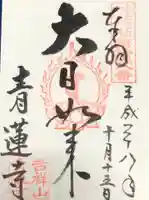 奉拝
平成二八年
十月十五日
大日如来
青蓮寺
吉祥山